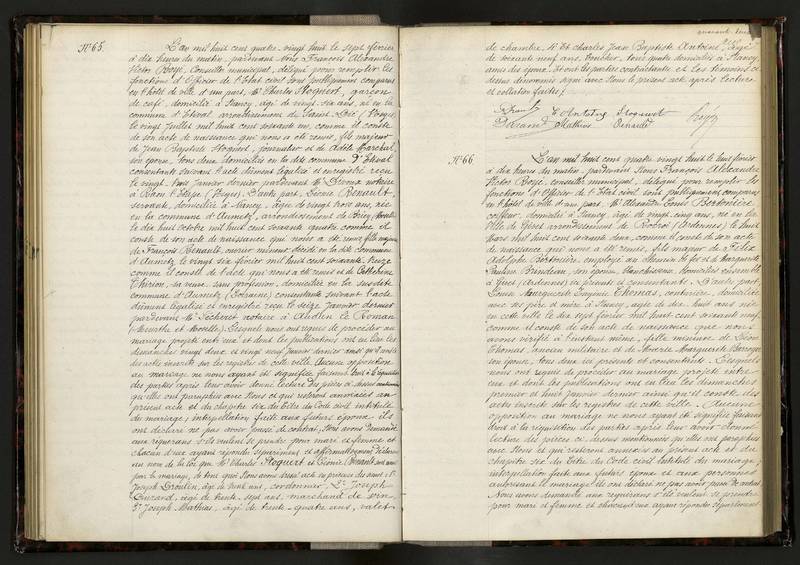 N° 65.
L'an mil huit cent quatre-vingt huit le sept février
à dix heures du matin, pardevant Nous François Alexandre
Victor Boyé, Conseiller municipal, délégué pour remplir les
fonctions d'Officier de l'Etat civil sont publiquement comparus
en l'hôtel de ville d'une part, Mr Charles Hoquert, garçon
de café, domicilié à Nancy, âgé de vingt-six ans, né en la
commune d'Etival arrondissement de Saint-Dié (Vosges)
le vingt juillet mil huit cent soixante un, comme il conste
de son acte de naissance qui nous a été remis, fils majeur
de Jean Baptiste Hoquert, journalier et de Adèle Marchal,
son épouse, tous deux domiciliés en la dite commune d'Etival
consentants suivant l'acte dûment légalisé et enregistré reçu
le vingt-trois janvier dernier pardevant Mr notaire
à Raon l'Etape (Vosges). D'autre part, Léonie Renault,
servante, domiciliée à Nancy, âgée de vingt trois ans, née
en la commune d'Aumetz, arrondissement de Briey (Moselle)
le dix huit octobre mil huit cent soixante quatre comme il
conste de son acte de naissance qui nous a été remis fille majeure
de François Renault, ouvrier mineur décédé en la dite commune
d'Aumetz, le vingt six février mil huit cent soixante treize
comme il conste de l'acte qui nous a été remis et de Catherine
Thirion, sa veuve, sans profession, domiciliée en la susdite
commune d'Aumetz (Lorraine) consentante suivant l'acte
dûment légalisé et enregistré reçu le seize janvier dernier
pardevant Mr Pécheret notaire à Audun le Roman
(Meurthe et Moselle). Lesquels nous ont requis de procéder au
mariage projeté entre eux et dont les publications ont eu lieu les
dimanches vingt deux et vingt neuf janvier dernier ainsi qu'il conste
des actes inscrits sur les registres de cette ville. Aucune opposition
au mariage ne nous ayant été signifiée faisant droit à la réquisition
des parties après leur avoir donné lecture des pièces ci dessus mentionnées
qu'elles ont paraphées avec Nous et qui resteront annexées au
présent acte et du chapitre six du titre du Code civil intitulé
du mariage, interpellation faite aux futurs époux ils
ont déclaré ne pas avoir passé de contrat, Nous avons demandé
aux requérants s'ils veulent se prendre pour mari et femme et
chacun d'eux ayant répondu séparément et affirmativement déclarons
au nom de la loi que Mr Charles Hoquert et Léonie Renault sont unis
par le mariage, de tout quoi Nous avons dressé acte en présence des
Joseph Drouin, âgé de trente ans, cordonnier, 2° Joseph
Cuzard, âgé de trente-sept ans, marchand de vin
3° Joseph Mathias, âgé de trente-quatre ans, valet
de chambre, 4° Et Charles Jean Baptiste Antoine, âgé
de soixante neuf ans, boucher, tous quatre domiciliés à Nancy
amis des époux. Et ont les parties contractantes et les témoins ci
dessus dénommés signé avec Nous le présent acte après lecture
et collation faites.
C. Antoine Hoquert
Mathias Renault
Boyé
N° 66
L'an mil huit cent quatre vingt huit le huit février
à dix heures du matin, pardevant Nous François Alexandre
Victor Boyé, conseiller municipal, délégué pour remplir les
fonctions d'Officier de l'Etat civil sont publiquement comparus
en l'hôtel de ville d'une part, Mr Alexandre Louis
coiffeur, domicilié à Nancy, âgé de vingt cinq ans, né en la
ville de Givet arrondissement de Rocroi (Ardennes) le huit
Mars mil huit cent soixante deux, comme il conste de son acte
de naissance qui nous a été remis, fils majeur de Félix
Adolphe employé au Chemin de fer et de Marguerite
Pauline son épouse, blanchisseuse, domiciliés ensemble
à Givet (Ardennes) ci présents et consentants. D'autre part
Louise Marguerite Eugénie Thomas, couturière, domiciliée
avec ses père et mère à Nancy, âgée de dix huit ans née
en cette ville le dix sept février mil huit cent soixante neuf,
comme il conste de son acte de naissance que nous
avons vérifié à l'instant même, fille mineure de Léon
Thomas, ancien militaire et de Marie Marguerite
son épouse, tous deux ici présents et consentants. Lesquels
nous ont requis de procéder au mariage projeté entre
eux et dont les publications ont eu lieu les dimanches
premier et huit janvier dernier ainsi qu'il conste des
actes inscrits sur les registres de cette ville. Aucune
opposition au mariage ne nous ayant été signifiée faisant
droit à la réquisition des parties après leur avoir donné
lecture des pièces ci dessus mentionnées qu'elles ont paraphées
avec Nous et qui resteront annexées au présent acte et du
chapitre six du titre du Code civil intitulé du mariage,
interpellation faite aux futurs époux et aux personnes
autorisant le mariage ils ont déclaré ne pas avoir passé de contrat
Nous avons demandé aux requérants s'ils veulent se prendre
pour mari et femme et chacun d'eux ayant répondu séparément